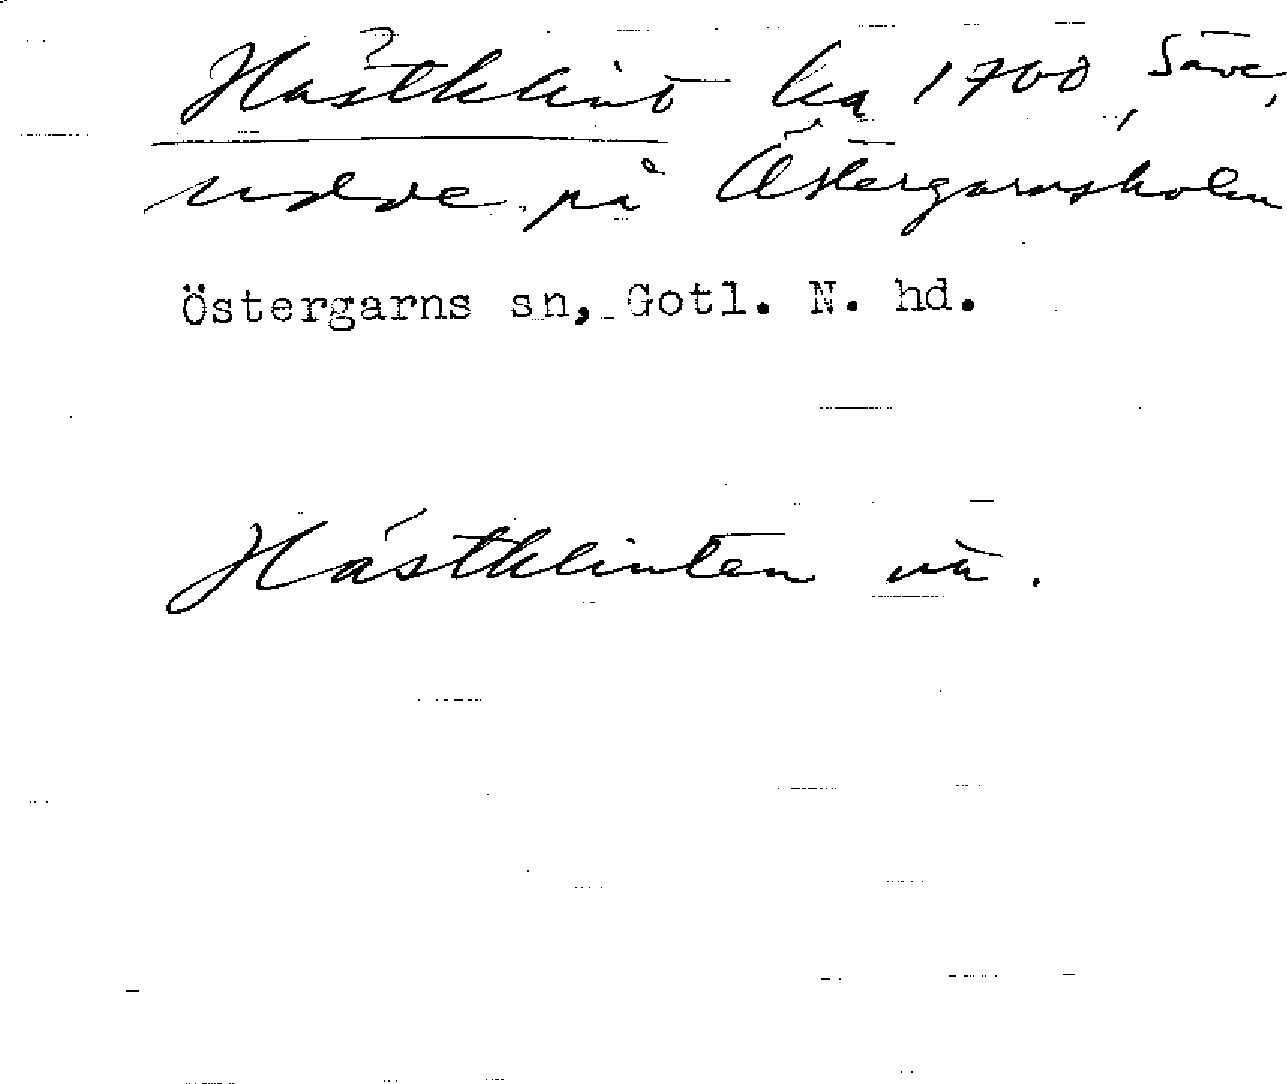 Hästklint ka 1700, Säve,
udde på Östergarnsholm
Östergarns sn, Gotl. N. hd.
Hästklinten nä.